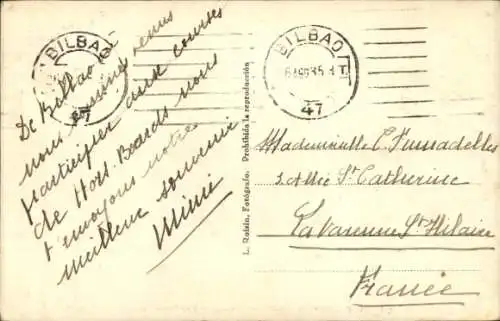 BILBAO
47
De Bilbao où
nous sommes venus
participer aux courses
de Hors-Boards nous
t'envoyons notre
meilleur souvenir
Mimi
L. Roisin, Fotógrafo. Prohibida la reproducción
BILBAO
35
47
Mademoiselle
3. Allée Ste Catherine
La Varenne St Hilaire
France